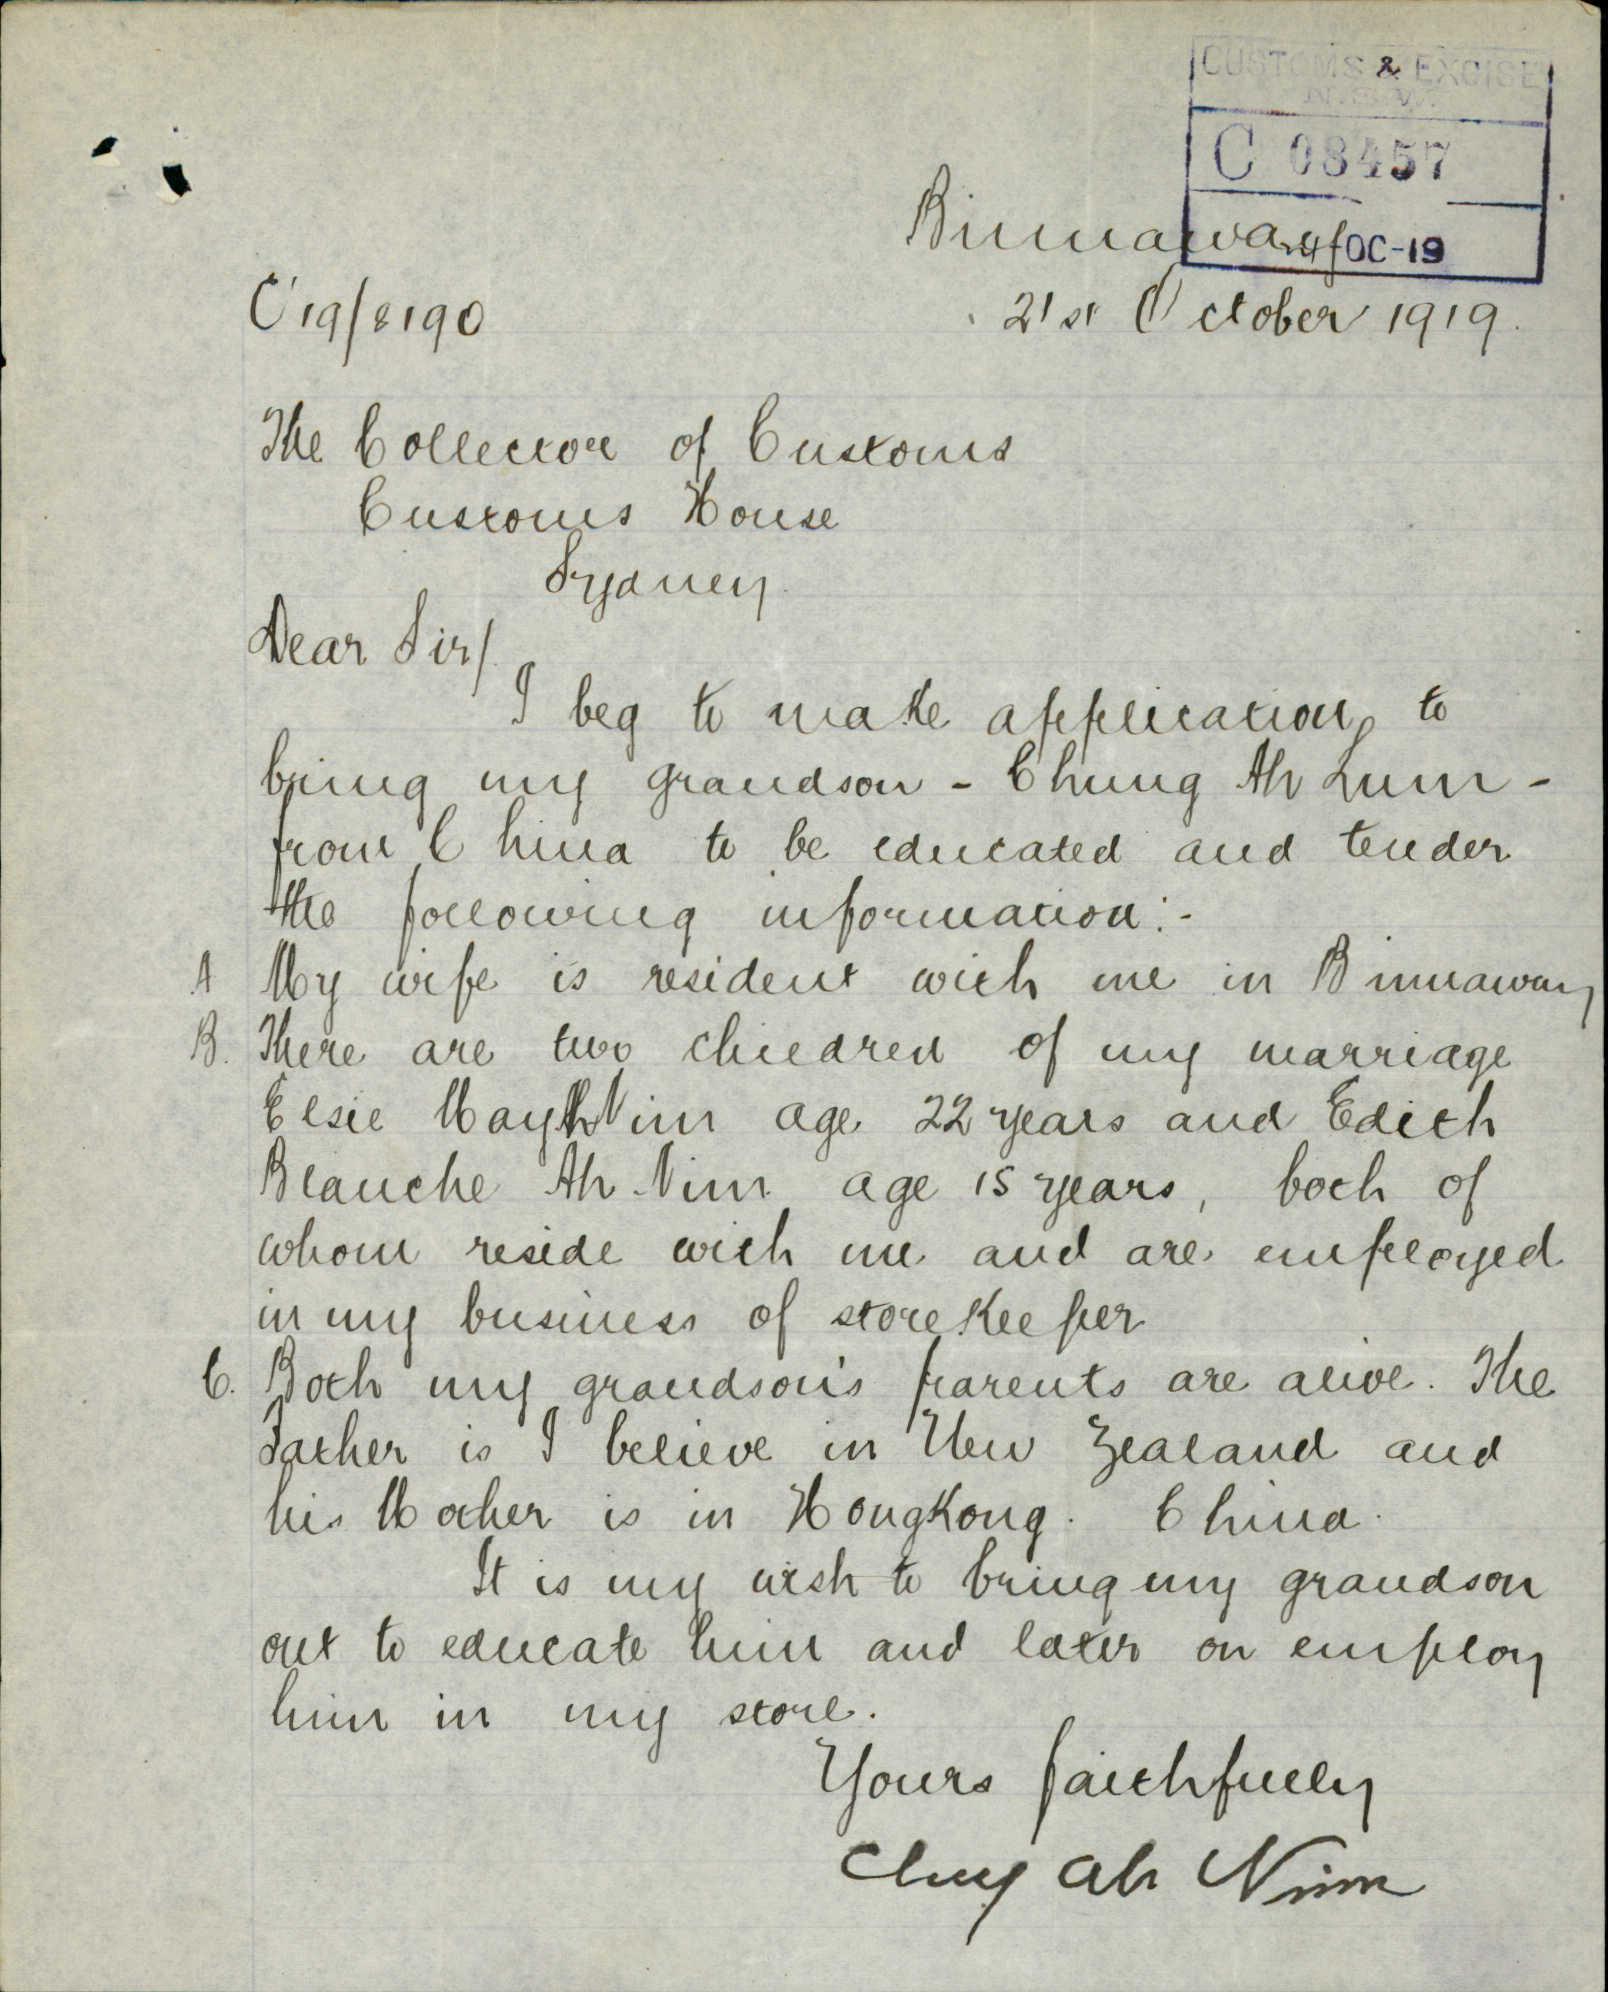 CUSTOMS & EXCISE
N.S.W.
C 08457
Binnaway
24 OC-19
C 19/8190
21st October 1919.
The Collector of Customs
Customs House
Sydney.
Dear Sir/
I beg to make application to
bring my grandson - Chung Ah Lum -
from China to be educated and tender
the following information:-
A My wife is resident with me in Binnaway
B. There are two children of my marriage
Elsie May Ah Nim age 22 years and Edith
Blanche Ah Nim age 15 years, both of
whom reside with me and are employed
in my business of storekeeper
C. Both my grandson's parents are alive. The
Father is I believe in New Zealand and
his Mother is in Hongkong. China.
It is my wish to bring my grandson
out to educate him and later on employ
him in my store.
Yours faithfully
Chug Ah Nim